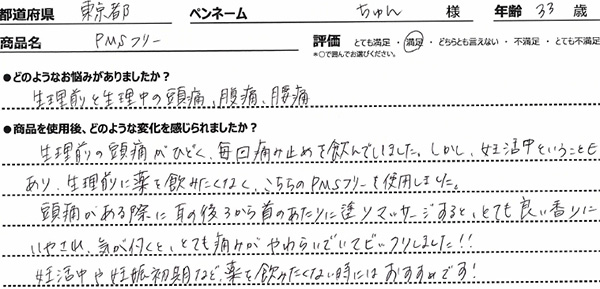 都道府県 東京都 ペンネーム ちゅん 様 年齢 33 歳
商品名 PMSフリー 評価 とても満足 ・ 満足 ・ どちらとも言えない ・ 不満足 ・ とても不満足
*○で囲んでお選びください。
●どのようなお悩みがありましたか?
生理前と生理中の頭痛、腹痛、腰痛
●商品を使用後、どのような変化を感じられましたか?
生理前の頭痛がひどく、毎回痛み止めを飲んでしました。しかし、妊活中ということも
あり、生理前に薬を飲みたくなく、こちらのPMSフリーを使用しました。
頭痛がある際に耳の後ろから首のあたりに塗りマッサージすると、とても良い香りに
いやされ、気が付くと、とても痛みがやわらいでいてビックリしました!!
妊活中や妊娠初期など、薬を飲みたくない時にはおすすめです!